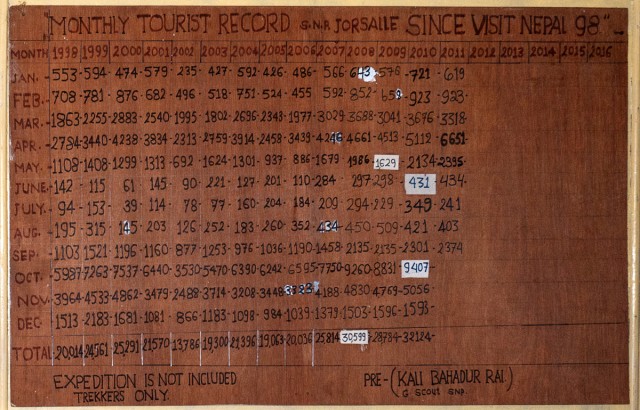 "MONTHLY TOURIST RECORD S.N.P. JORSALLE SINCE VISIT NEPAL 98."
MONTH 1998 1999 2000 2001 2002 2003 2004 2005 2006 2007 2008 2009 2010 2011 2012 2013 2014 2015 2016
JAN. 553 594 474 579 235 427 592 426 486 566 643 576 721 619
FEB. 708 781 876 682 496 518 751 524 455 592 852 658 923 923
MAR. 1863 2255 2883 2540 1995 1802 2696 2348 1977 3029 3688 3041 3676 3318
APR. 2794 3440 4238 3834 2313 2759 3914 2458 3439 4246 4661 4513 5112 6651
MAY. 1108 1408 1299 1313 692 1624 1301 937 886 1679 1986 1629 2134 2395
JUNE 142 115 61 145 90 221 127 201 110 284 297 298 431 434
JULY. 94 153 39 114 78 77 160 204 184 209 294 229 349 241
AUG. 195 315 145 203 126 252 183 260 352 434 450 509 421 403
SEP. 1103 1521 1196 1160 877 1253 976 1036 1190 1458 2135 2135 2301 2374
OCT. 5987 7263 7537 6440 3530 5470 6390 6242 6595 7750 9260 8831 9407
NOV. 3964 4533 4862 3479 2488 3714 3208 3448 4188 4830 4769 5056
DEC 1513 2183 1681 1081 866 1183 1098 984 1039 1379 1503 1596 1593
TOTAL 20014 24561 25,291 21570 13,786 19,300 21,396 19,063 20,036 25814 30,599 28784 32124
EXPEDITION IS NOT INCLUDED
TREKKERS ONLY.
PRE-(KALI BAHADUR RAI.)
G SCOUT SNP.